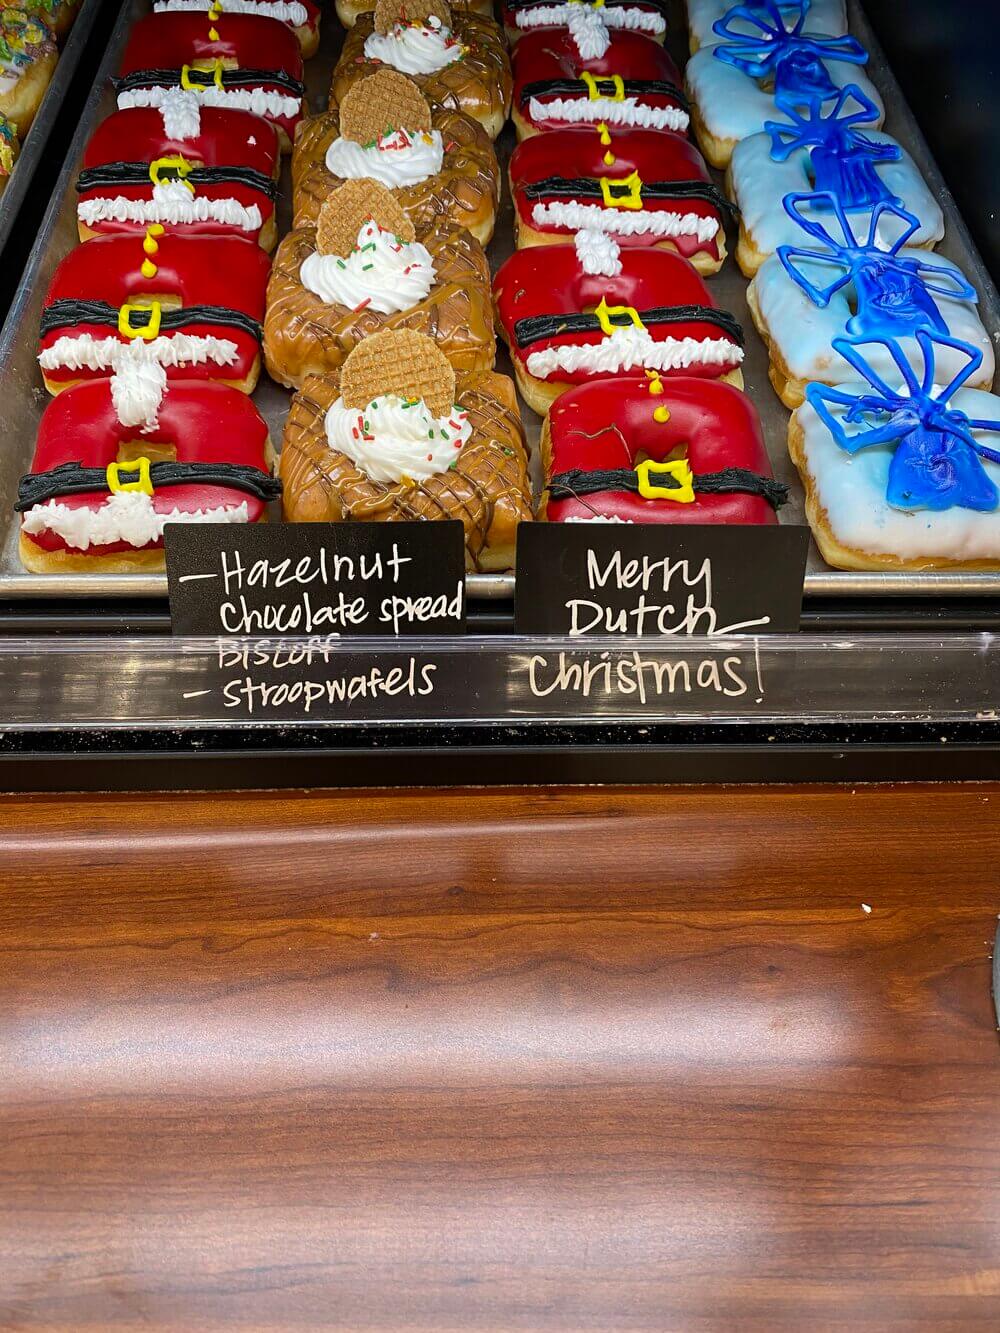 - Hazelnut
Chocolate spread
- Biscoff
- Stroopwafels
Merry
Dutch
Christmas!